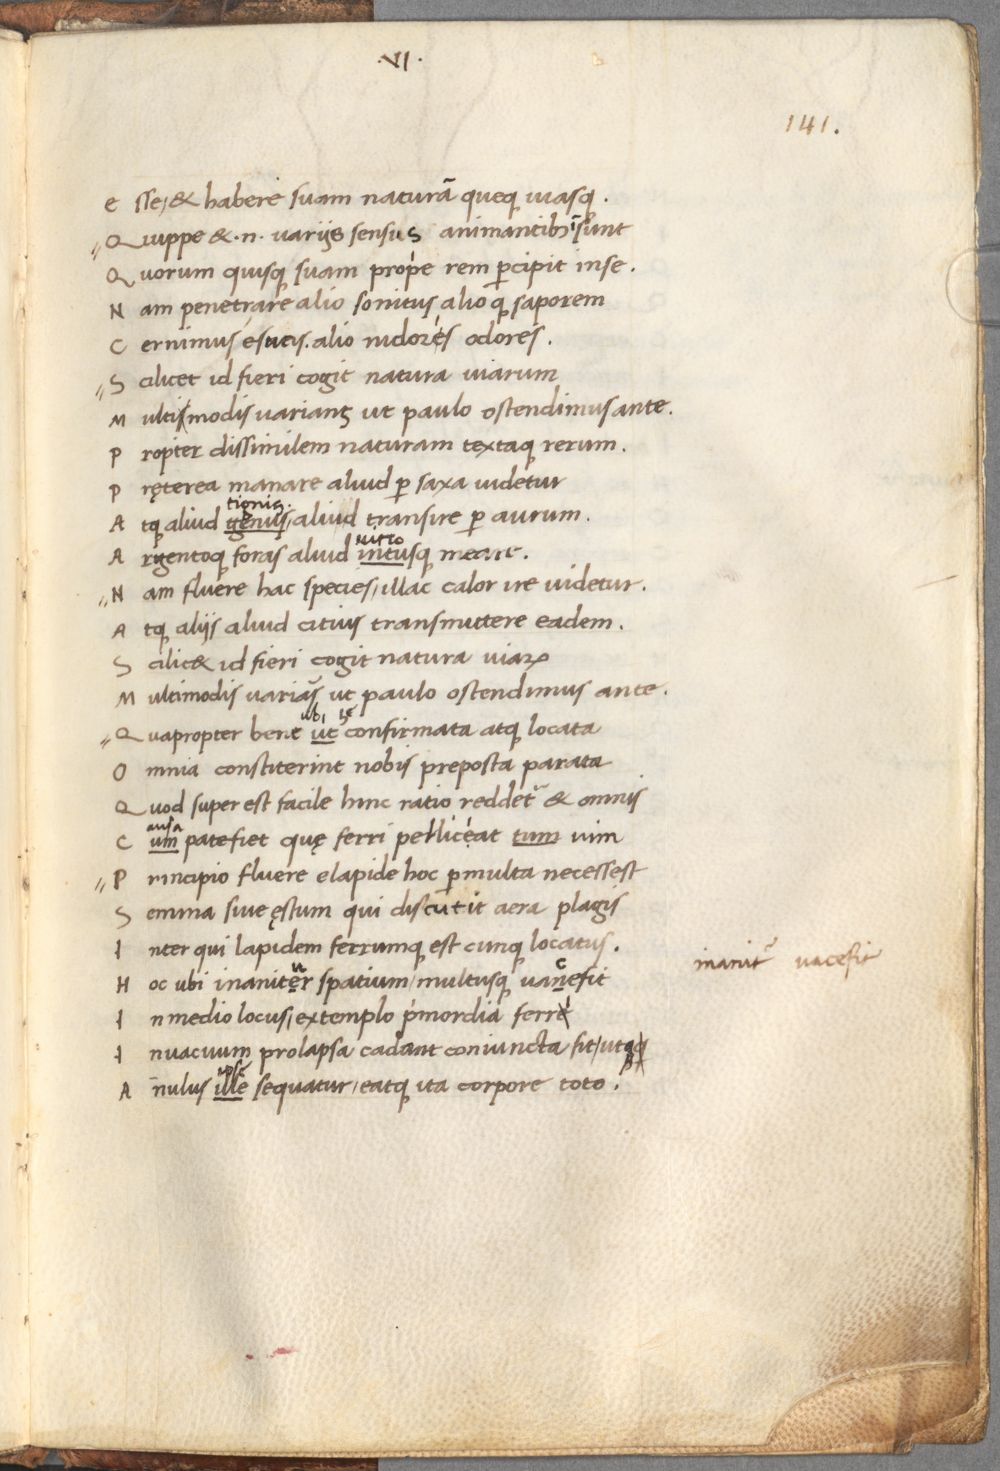 .VI.
141.
E sse, & habere suam naturā queq; uiasq;.
Q uippe &.n. uarijs sensus animantib; ī sunt
Q uorum quisq; suam prope rem p̄cipit inse.
N am penetrare alio sonitus alio q; saporem
C ernimus é sucis. alio nidorés odores.
S cilicet id fieri cogit natura uiarum
M ultismodis varians ut paulo ostendimus ante.
P ropter dissimilem naturam textaq; rerum.
P ręterea manare aliud p saxa uidetur
tignis.
A tq; aliud genus, aliud transire p aurum.
uitro
A rgentoq; foras aliud intusq; meare.
N am fluere hac species, illac calor ire uidetur.
A tq; alijs aliud citius transmittere eadem.
S cilic& id fieri cogit natura uiaꝝ
M ultimodis varians ut paulo ostendimus ante.
ubi
Q uapropter bene ut confirmata atq; locata
O mnia constiterint nobis preposta parata
Q uod super est facile hinc ratio reddet᷑ & omnis
ausa
C um patefiet quę ferri pelliceat tum uim
P rincipio fluere elapide hoc pmulta necessest
S emina siue ęstum qui discutit aera plagis
I nter qui lapidem ferrumq; est cunq; locatus.
u c
H oc ubi inaniter spatium, multusq; vanefit
inanit᷑ vacefit
I nmedio locus, extemplo p̍mordia ferré
I nuacuum prolapsa cadant coniuncta fit, utq;
ipse
A nulus ille sequatur, eatq; ita corpore toto.